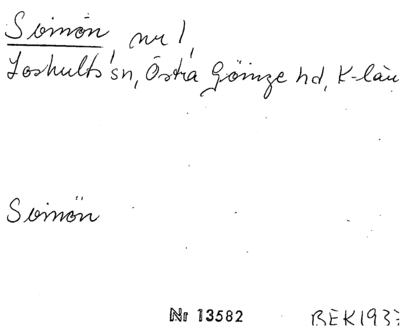 Svinön, nr 1,
Loshults sn, Östra Göinge hd, K-län
Svinön
Nr 13582 BEK1937